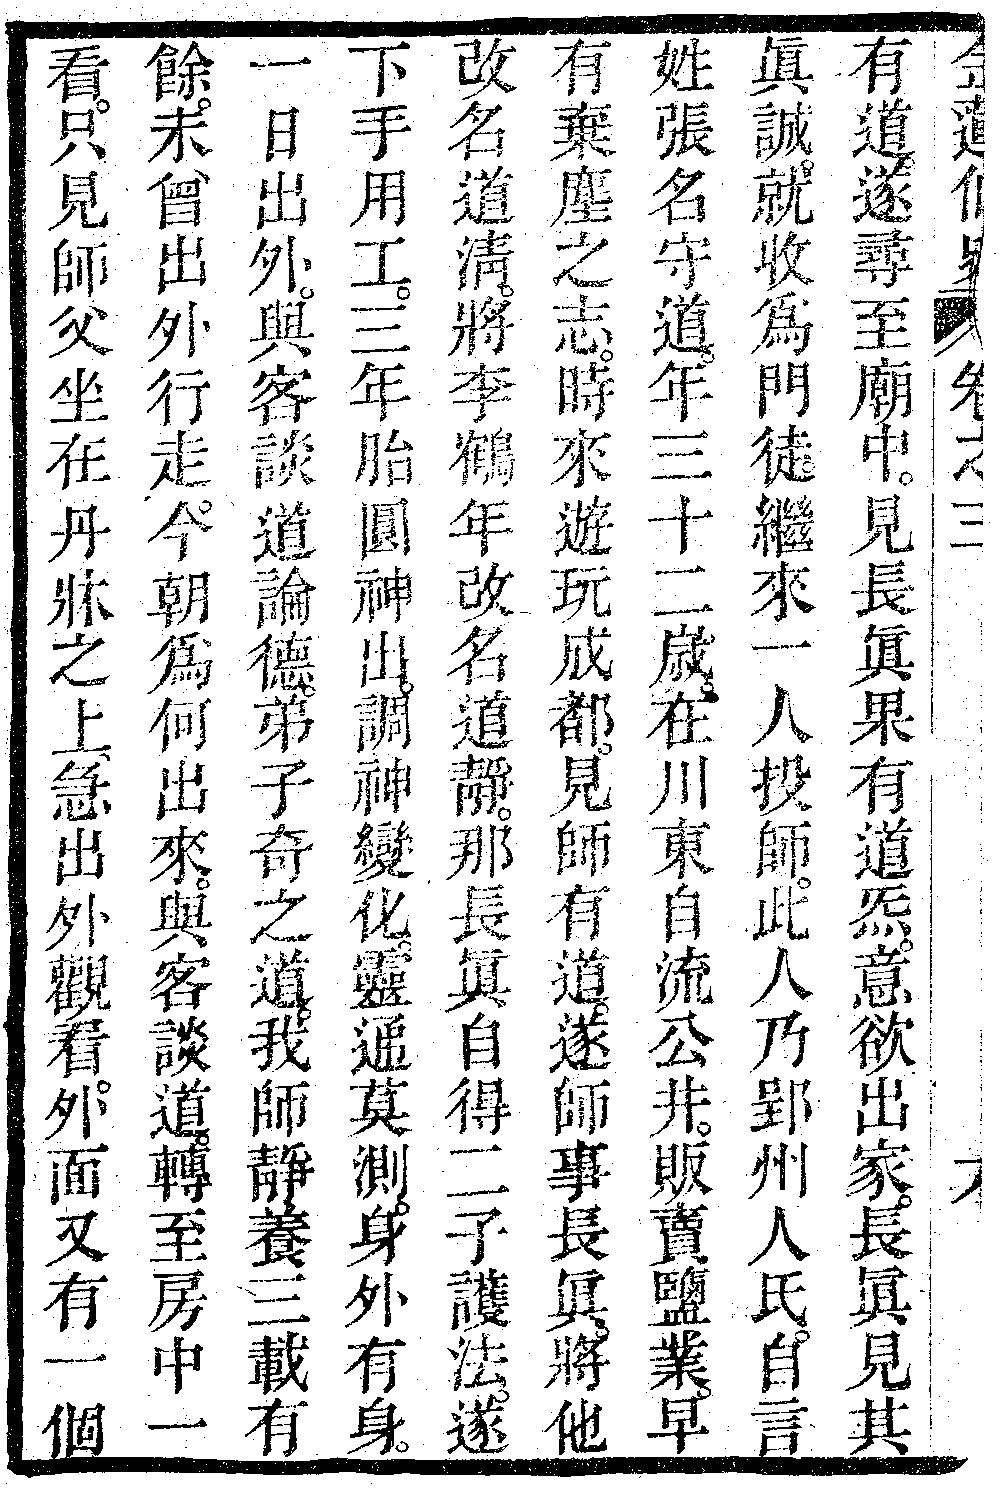 金蓮仙史 卷之三
有道。遂尋至廟中。見長眞果有道炁。意欲出家。長眞見其
眞誠。就收爲門徒。繼來一人投師。此人乃郢州人氏。自言
姓張名守道。年三十二歲。在川東自流公井。販賣鹽業。早
有棄塵之志。時來遊玩成都。見師有道。遂師事長眞。將他
改名道清。將李鶴年改名道靜。那長眞自得二子護法。遂
下手用工。三年胎圓神出。調神變化。靈通莫測。身外有身。
一日出外。與客談道論德。弟子奇之道。我師靜養三載有
餘。未曾出外行走。今朝爲何出來。與客談道。轉至房中一
看。只見師父坐在丹牀之上。急出外觀看。外面又有一個